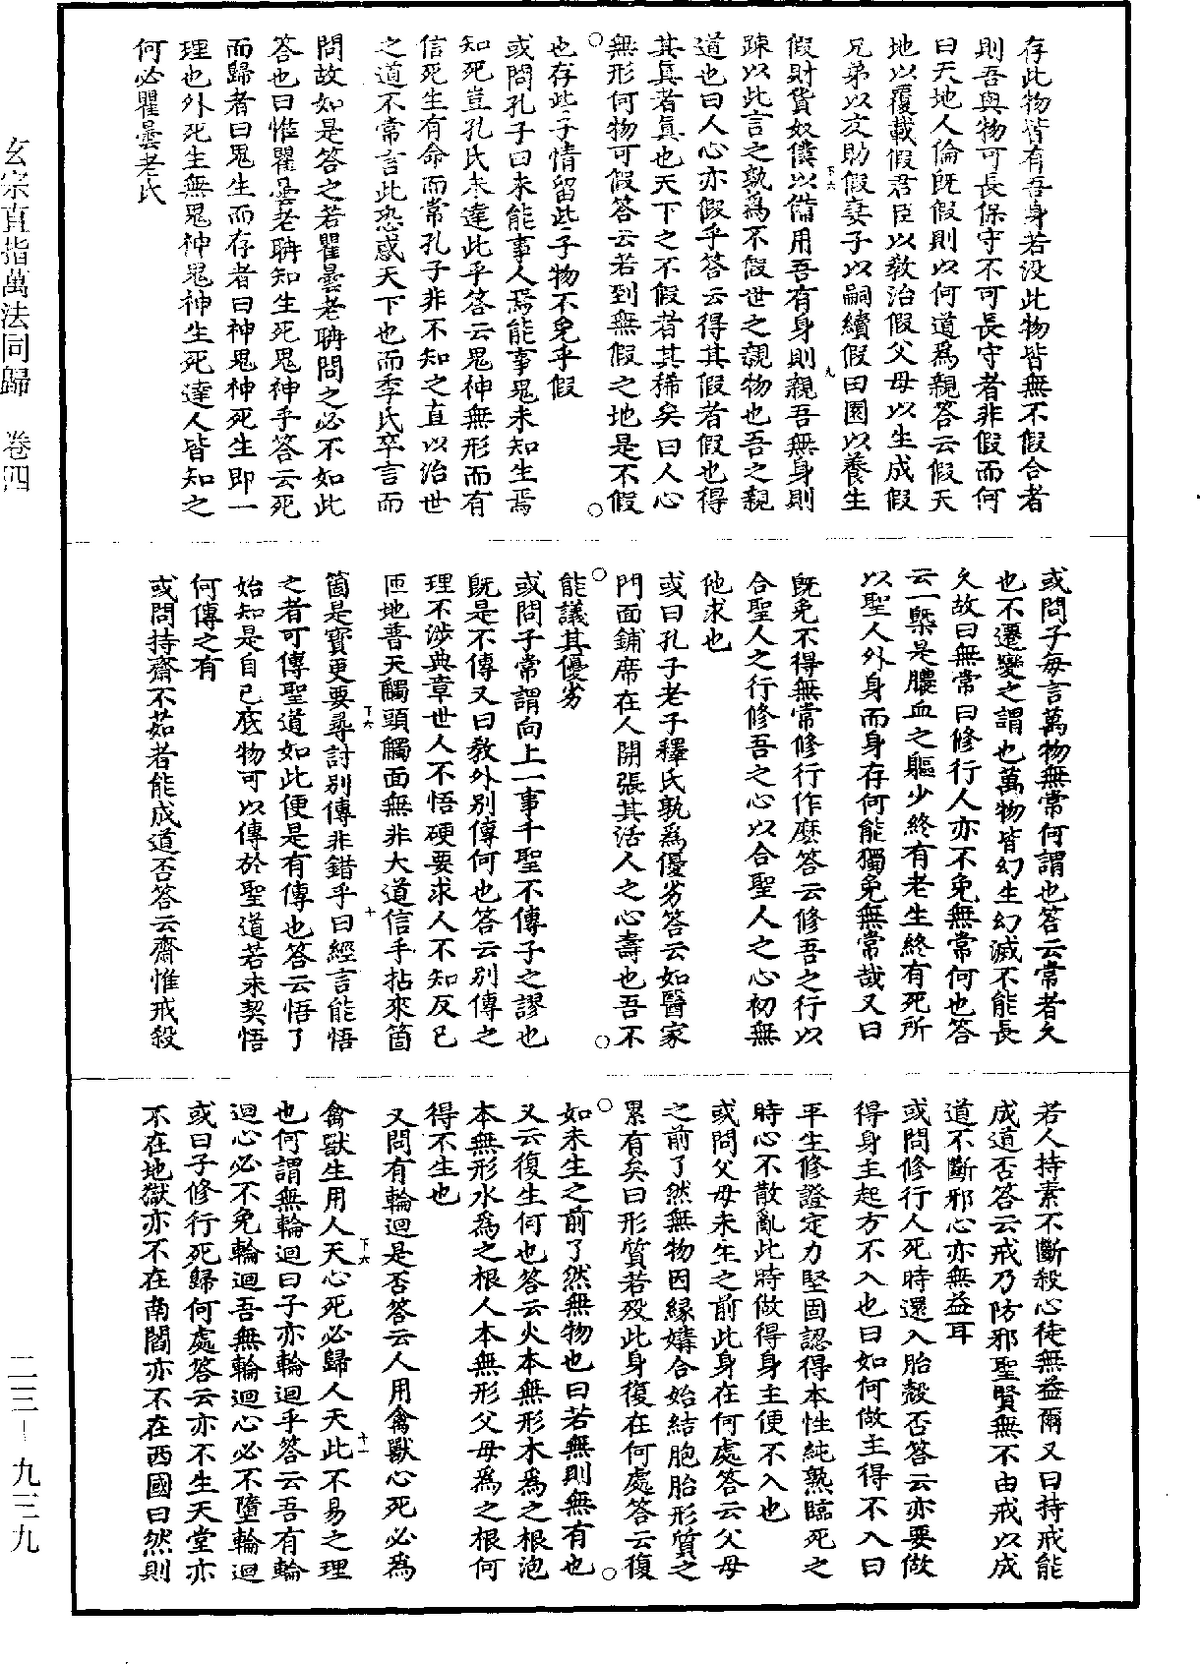 存此物皆有吾身若没此物皆無不假合者
則吾與物可長保守不可長守者非假而何
曰天地人倫既假則以何道爲親答云假天
地以覆載假君臣以教治假父母以生成假
兄弟以友助假妻子以嗣續假田園以養生
下六
九
假財貨奴僕以備用吾有身則親吾無身則
踈以此言之孰爲不假世之親物也吾之親
道也曰人心亦假乎答云得其假者假也得
其真者真也天下之不假者其稀矣曰人心
無形何物可假答云若到無假之地是不假
也存些子情留些子物不免乎假
或問孔子曰未能事人焉能事鬼未知生焉
知死豈孔氏未達此乎答云鬼神無形而有
信死生有命而常孔子非不知之直以治世
之道不常言此恐惑天下也而季氏卒言而
問故如是答之若瞿曇老聃問之必不如此
答也曰惟瞿曇老聃知生死鬼神乎答云死
而歸者曰鬼生而存者曰神鬼神死生即一
理也外死生無鬼神鬼神生死達人皆知之
何必瞿曇老氏
或問子每言萬物無常何謂也答云常者久
也不遷變之謂也萬物皆幻生幻滅不能長
久故曰無常曰修行人亦不免無常何也答
云一槩是膿血之軀少終有老生終有死所
以聖人外身而身存何能獨免無常哉又曰
既免不得無常修行作麽答云修吾之行以
合聖人之行修吾之心以合聖人之心初無
他求也
或曰孔子老子釋氏孰爲優劣答云如醫家
門面鋪席在人開張其活人之心壽也吾不
能議其優劣
或問子常謂向上一事千聖不傳子之謬也
既是不傳又曰教外别傳何也答云别傳之
理不涉典章世人不悟硬要求人不知反己
匝地普天觸頭觸面無非大道信手拈來箇
下六
十
箇是寶更要尋討别傳非錯乎曰經言能悟
之者可傳聖道如此便是有傳也答云悟了
始知是自己底物可以傳於聖道若未契悟
何傳之有
或問持齋不茹者能成道否答云齋惟戒殺
若人持素不斷殺心徒無益爾又曰持戒能
成道否答云戒乃防邪聖賢無不由戒以成
道不斷邪心亦無益耳
或問修行人死時還入胎殼否答云亦要做
得身主起方不入也曰如何做主得不入曰
平生修證定力堅固認得本性純熟臨死之
時心不散亂此時做得身主便不入也
或問父母未生之前此身在何處答云父母
之前了然無物因緣媾合始結胞胎形質之
累有矣曰形質若歿此身復在何處答云復
如未生之前了然無物也曰若無則無有也
又云復生何也答云火本無形木爲之根泡
本無形水爲之根人本無形父母爲之根何
得不生也
又問有輪迴是否答云人用禽獸心死必爲
下六
十一
禽獸生用人天心死必歸人天此不易之理
也何謂無輪迴曰子亦輪迴乎答云吾有輪
迴心必不免輪迴吾無輪迴心必不墮輪迴
或曰子修行死歸何處答云亦不生天堂亦
不在地獄亦不在南閻亦不在西國曰然則
玄宗直指萬法同歸 卷四
二三－九三九